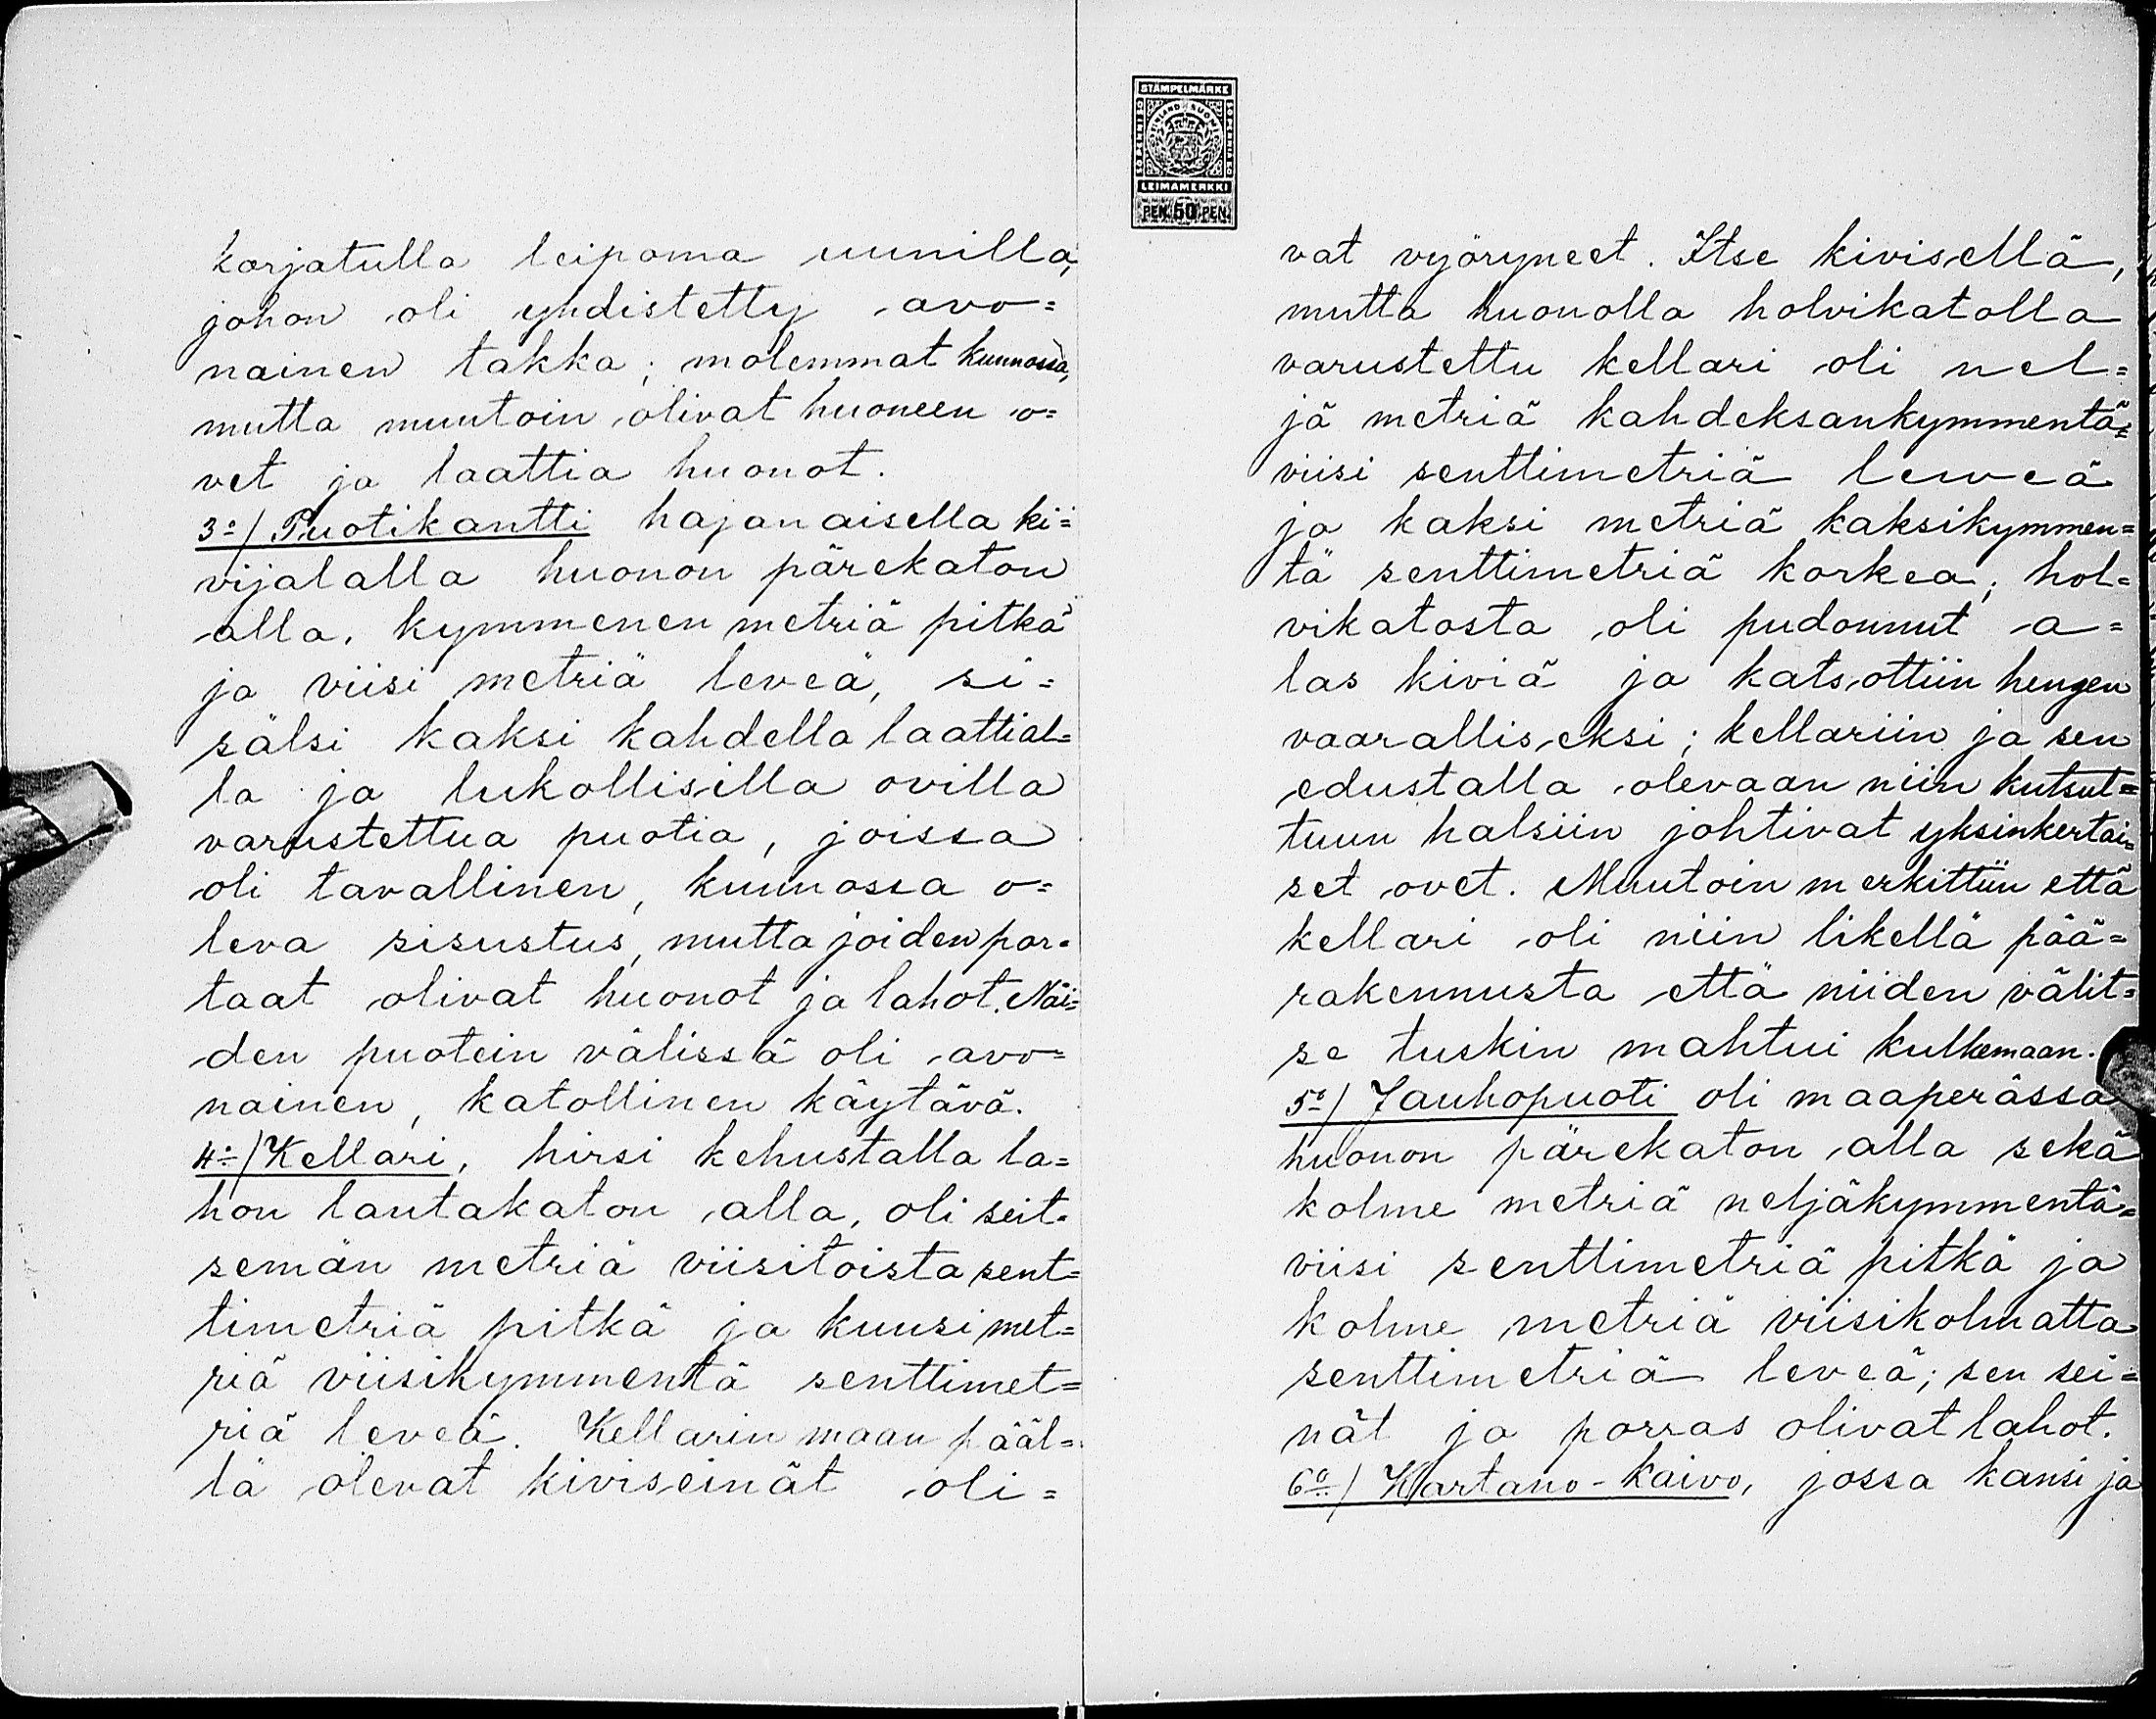 korjatulla leipoma uunilla,
johon oli yhdistetty avo=
nainen takka; molemmat kunnossa,
mutta muutoin olivat huoneen o=
vet ja laattia huonot.
3o/ Puotikantti hajanaisella ki=
vijalalla huonon pärekaton
alla, kymmenen metriä pitkä
ja viisi metriä leveä, si=
sälsi kaksi kahdella laattial=
la ja lukollisilla ovilla
varustettua puotia, joissa
oli tavallinen, kunnossa o=
leva sisustus, mutta joiden por=
taat olivat huonot ja lahot. Näi=
den puotein välissä oli avo=
nainen, katollinen käytävä.
4o/ Kellari, hirsi kehustalla la=
hon lautakaton alla, oli seit=
semän metriä viisitoista sent=
timetriä pitkä ja kuusi met=
riä viisikymmentä senttimet=
riä leveä. Kellarin maan pääl=
lä olevat kiviseinät oli=
STÄMPELMÄRKE
FINLAND SUOMI
50 PENNI 50
50 PENNIÄ 50
LEIMAMERKKI
PEN. 50 PEN.
vat vyöryneet. Itse kivisellä,
mutta huonolla holvikatolla
varustettu kellari oli nel=
jä metriä kahdeksankymmentä=
viisi senttimetriä leveä
ja kaksi metriä kaksikymmen=
tä senttimetriä korkea; hol=
vikatosta oli pudonnut a=
las kiviä ja katsottiin hengen
vaaralliseksi; kellariin ja sen
edustalla olevaan niin kutsut=
tuun halsiin johtivat yksinkertai=
set ovet. Muutoin merkittiin että
kellari oli niin likellä pää=
rakennusta että niiden välit=
se tuskin mahtui kulkemaan.
5o/ Jauhopuoti oli maaperässä
huonon pärekaton alla sekä
kolme metriä neljäkymmentä=
viisi senttimetriä pitkä ja
kolme metriä viisikolmatta
senttimetriä leveä; sen sei=
nät ja porras olivat lahot.
6o/ Kartano-kaivo, jossa kansi ja